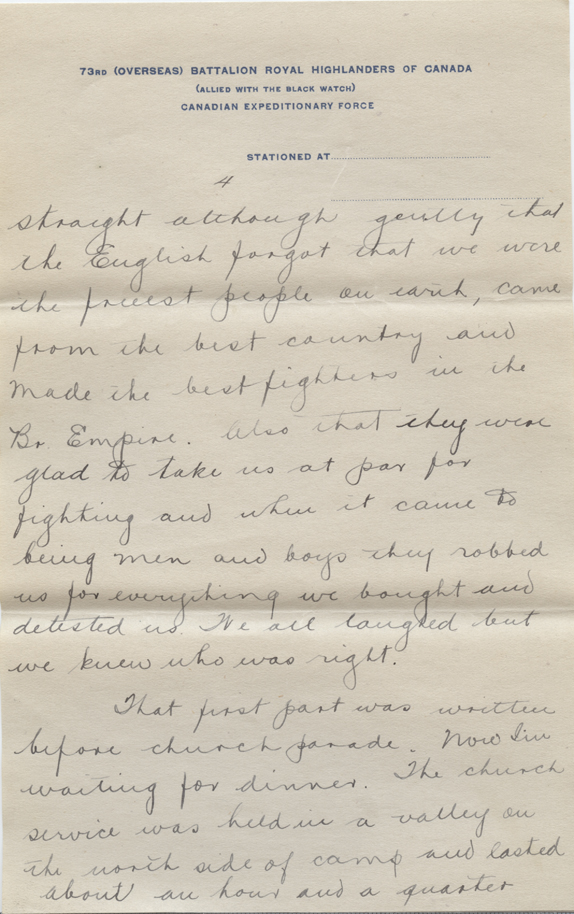 73RD (OVERSEAS) BATTALION ROYAL HIGHLANDERS OF CANADA
(ALLIED WITH THE BLACK WATCH)
CANADIAN EXPEDITIONARY FORCE
STATIONED AT
4
straight although gently that
the English forgot that we were
the freeest people on earth, came
from the best country and
made the best fighters in the
Br. Empire. Also that they were
glad to take us at par for
fighting and when it came to
being men and boys they robbed
us for everything we bought and
detested us. We all laughed but
we knew who was right.
That first part was written
before church parade. Now I'm
waiting for dinner. The church
service was held in a valley on
the north side of camp and lasted
about an hour and a quarter